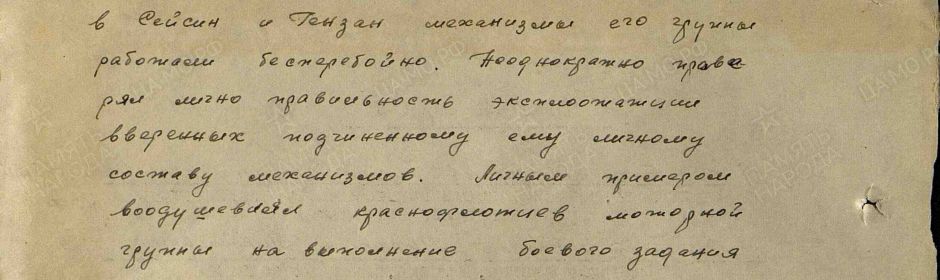 в Сейсин и Гензан механизмы его группы
работали бесперебойно. Неоднократно прове
рял лично правильность эксплоотатции
вверенных подчиненному ему личному
составу механизмов. Личным примером
воодушевлял краснофлотцев моторной
группы на выполнение боевого задания